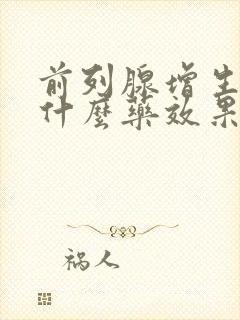 前列腺增生
什麼藥效果
祸人